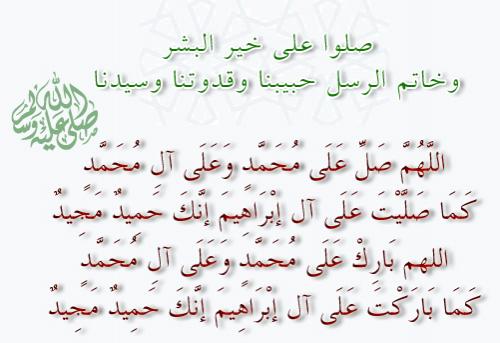 صلوا على خير البشر
وخاتم الرسل حبيبنا وقدوتنا وسيدنا
صلى الله عليه وسلم
اللَّهُمَّ صَلِّ عَلَى مُحَمَّدٍ وَعَلَى آلِ مُحَمَّدٍ
كَمَا صَلَّيْتَ عَلَى آلِ إبْرَاهِيمَ إنَّكَ حَمِيدٌ مَجِيدٌ
اللهم بَارِكْ عَلَى مُحَمَّدٍ وَعَلَى آلِ مُحَمَّدٍ
كَمَا بَارَكْتَ عَلَى آلِ إبْرَاهِيمَ إنَّكَ حَمِيدٌ مَجِيدٌ